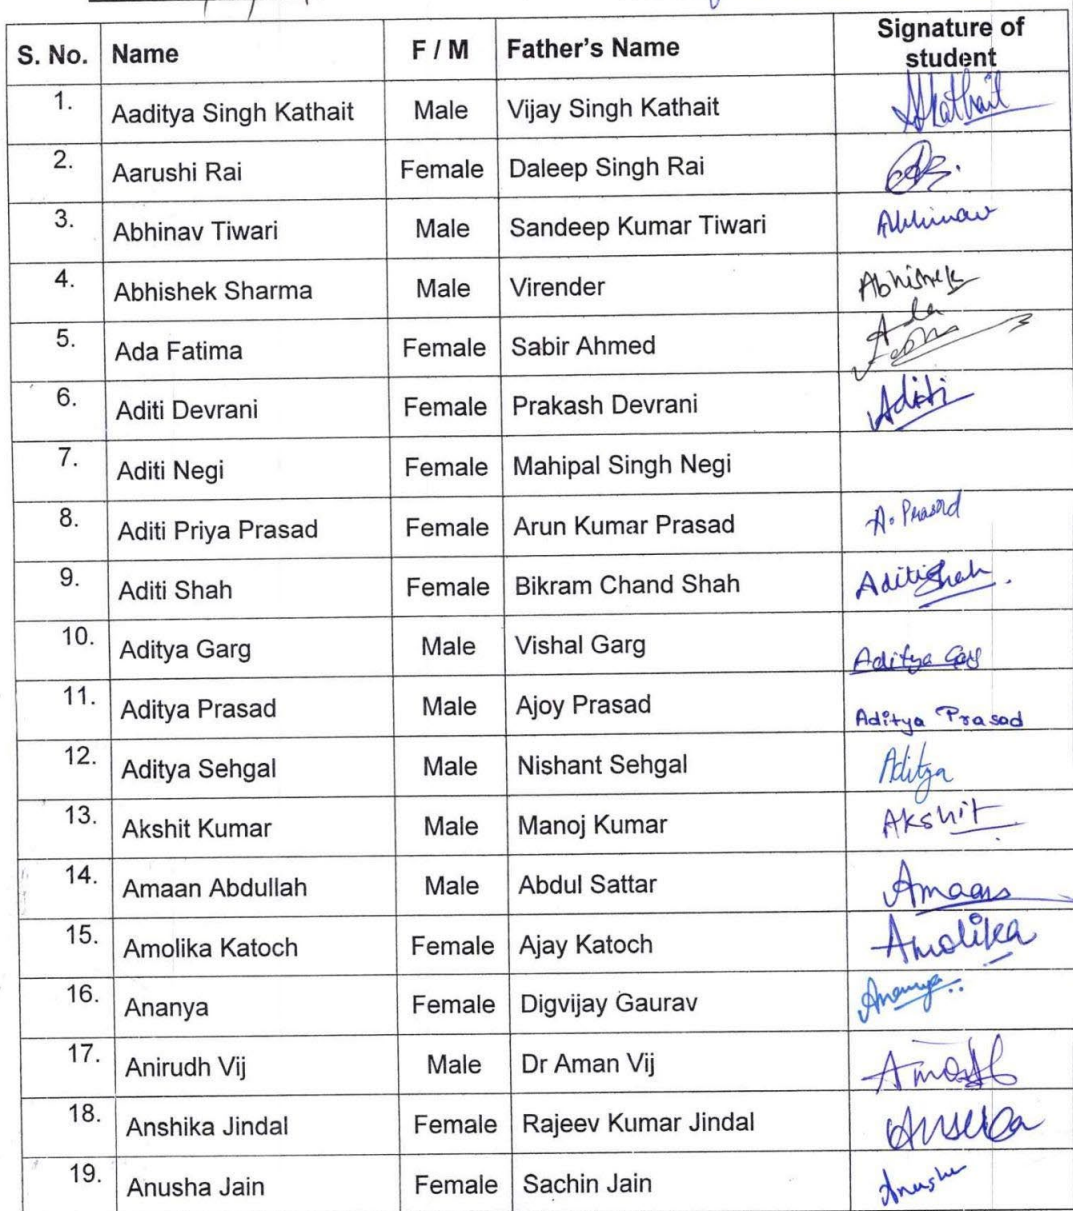 S. No. Name F / M Father's Name Signature of student
1. Aaditya Singh Kathait Male Vijay Singh Kathait AKathait
2. Aarushi Rai Female Daleep Singh Rai
3. Abhinav Tiwari Male Sandeep Kumar Tiwari Abhinav
4. Abhishek Sharma Male Virender Abhishek
5. Ada Fatima Female Sabir Ahmed Ada
6. Aditi Devrani Female Prakash Devrani Aditi
7. Aditi Negi Female Mahipal Singh Negi
8. Aditi Priya Prasad Female Arun Kumar Prasad A. Prasad
9. Aditi Shah Female Bikram Chand Shah Aditi Shah.
10. Aditya Garg Male Vishal Garg Aditya Garg
11. Aditya Prasad Male Ajoy Prasad Aditya Prasad
12. Aditya Sehgal Male Nishant Sehgal Aditya
13. Akshit Kumar Male Manoj Kumar Akshit
14. Amaan Abdullah Male Abdul Sattar Amaan
15. Amolika Katoch Female Ajay Katoch Amolika
16. Ananya Female Digvijay Gaurav Ananya
17. Anirudh Vij Male Dr Aman Vij
18. Anshika Jindal Female Rajeev Kumar Jindal
19. Anusha Jain Female Sachin Jain Anusha